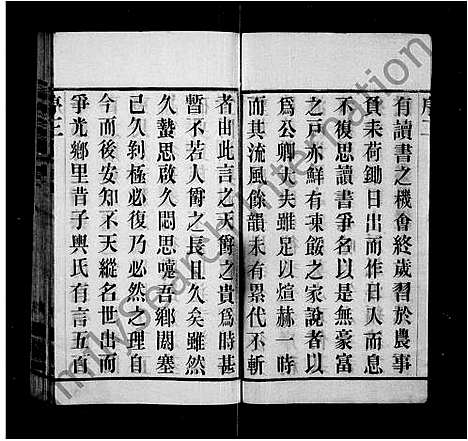 序二
有讀書之機會終歲習於農事
負耒荷鋤日出而作日入而息
不復思讀書爭名以是無豪富
之戸亦鮮有凍餒之家說者以
爲公卿大夫雖足以煊赫一時
而其流風餘韻未有累代不斬
者由此言之天爵之貴爲時甚
暫不若人爵之長且久矣雖然
久蟄思啟久悶思嚏吾鄉閉塞
已久剥極必復乃必然之理自
今而後安知不天縱名世出而
爭光鄉里昔子輿氏有言五百
序三